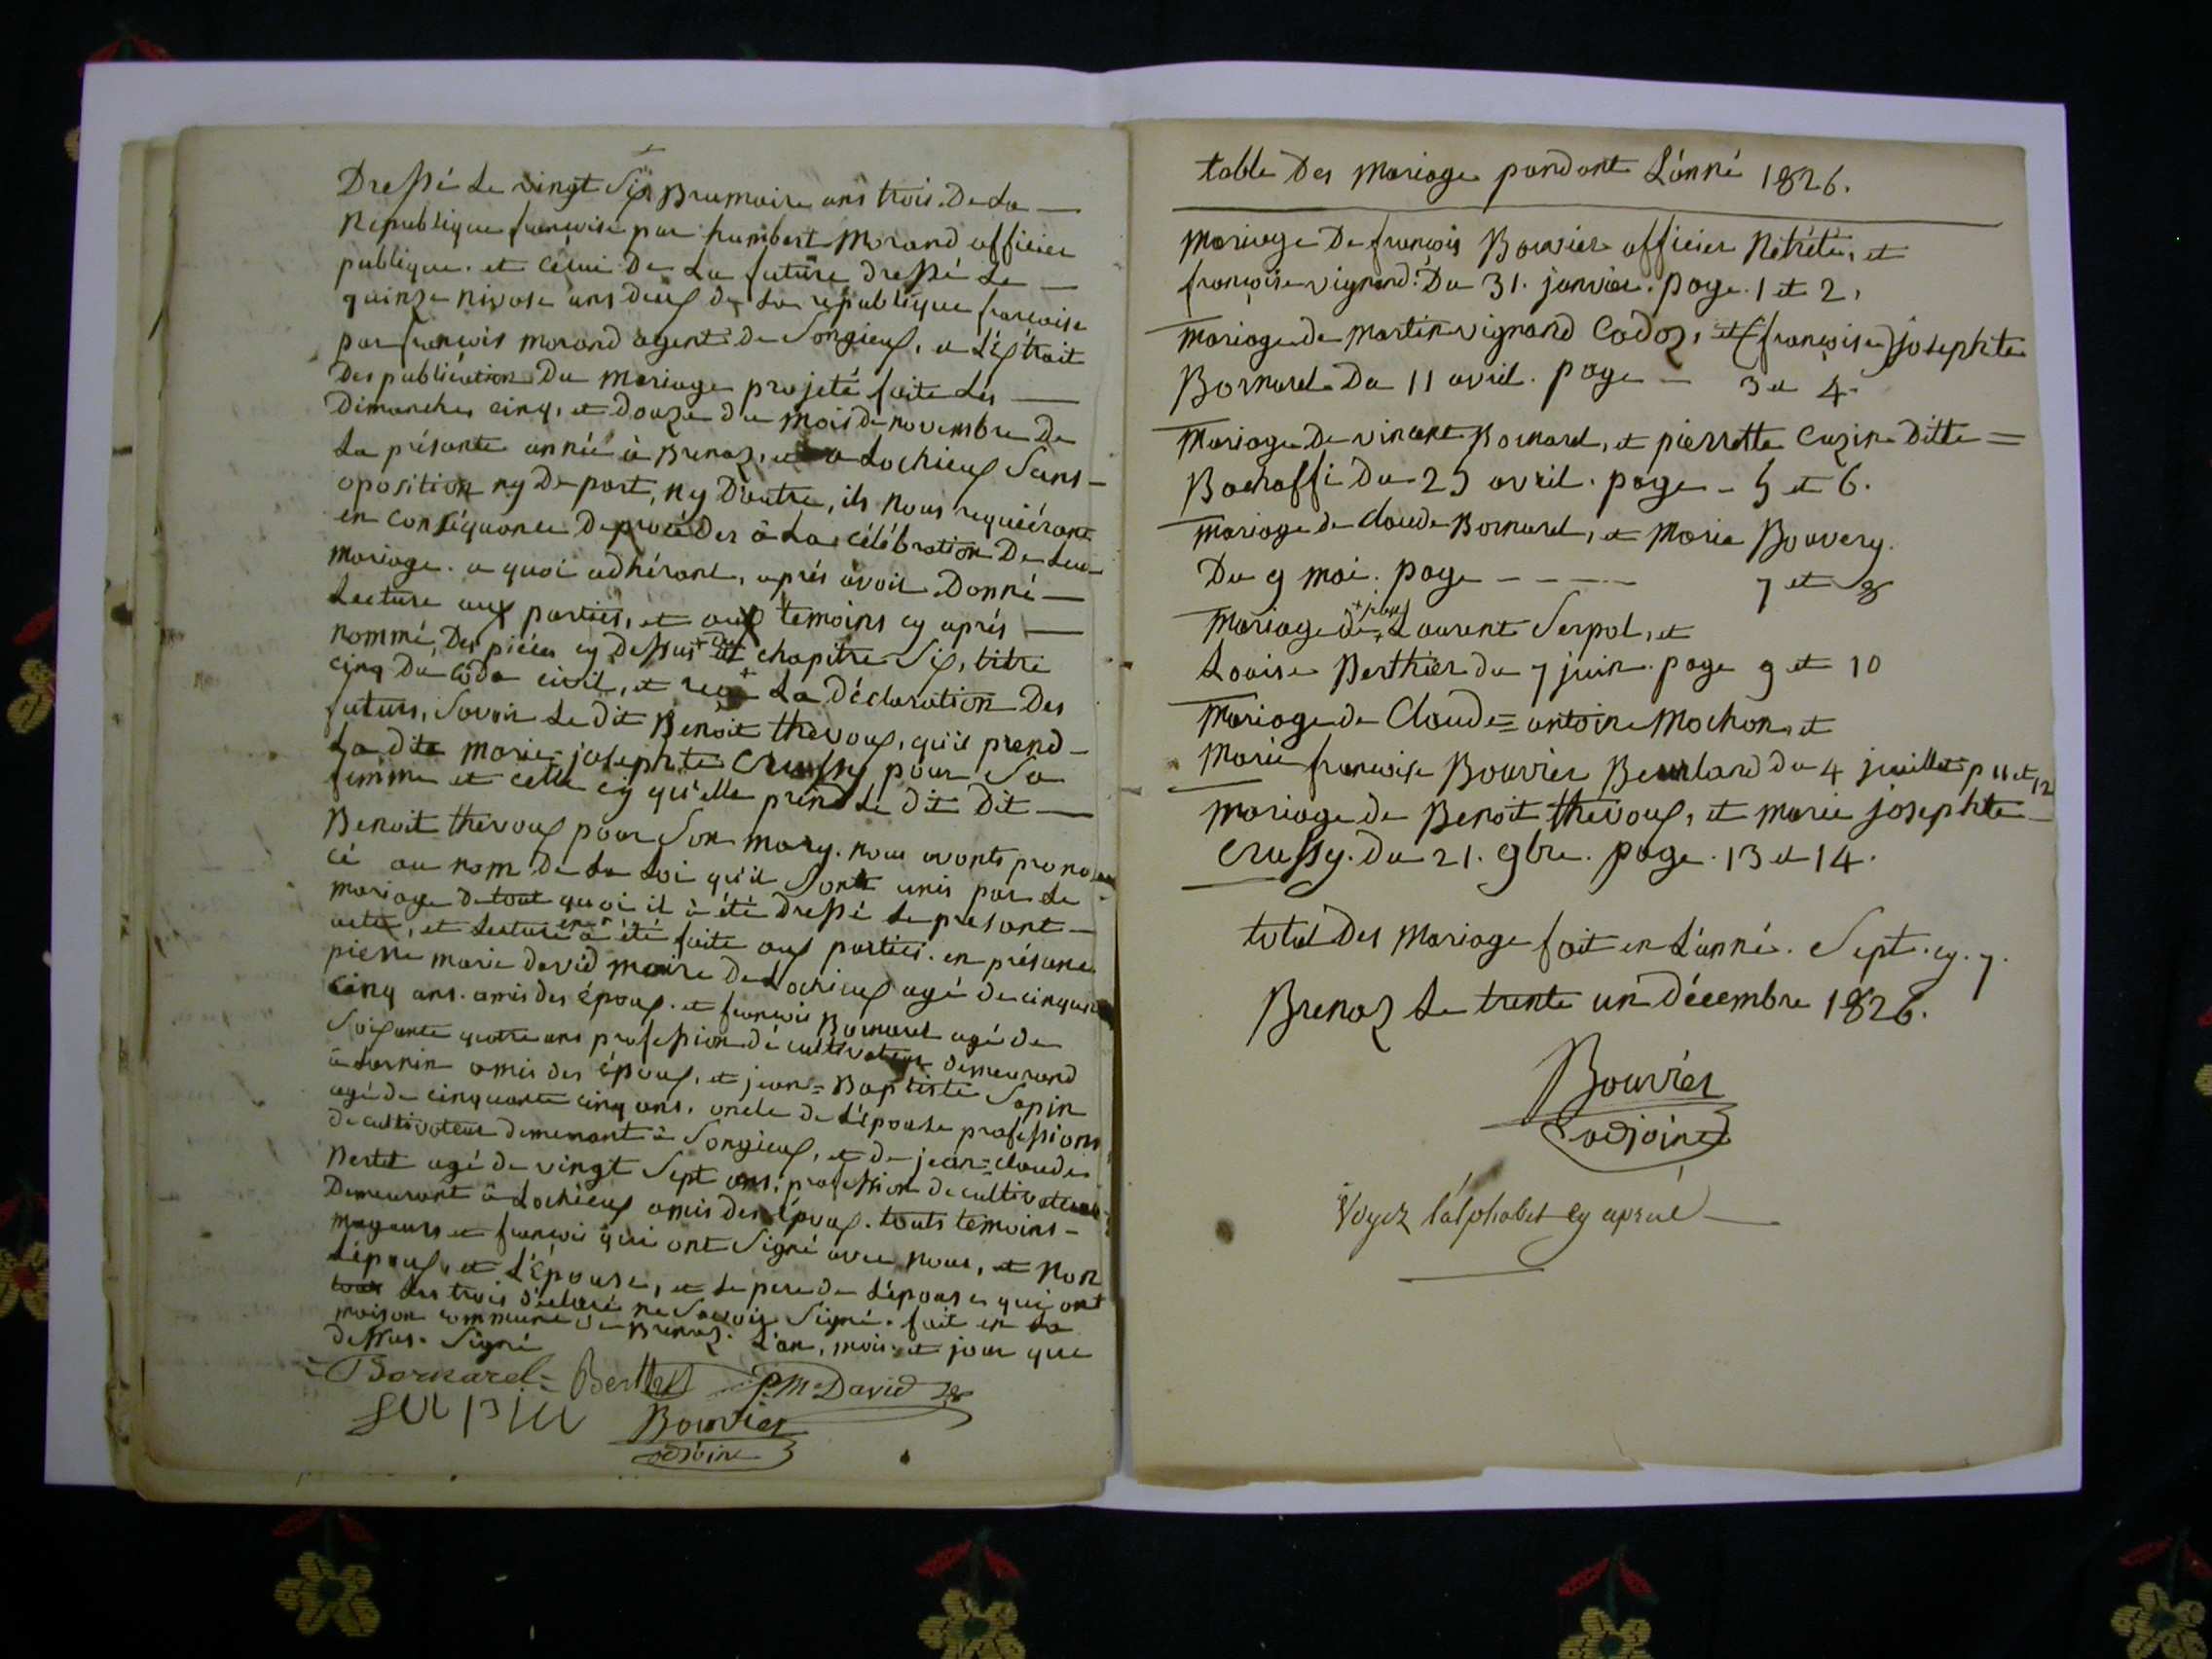 Dressé le vingt Six Brumaire ans trois. De la
Republique francoise par humbert Morand officier
publique. et celui De La future dressé Le
quinze nivose ans deux de la republique francoise
par francois morand agent de Songieux, et L'éxtrait
Des publication Du mariage projeté faite Les
Dimanches cinq, et douze du mois de novembre De
La présante année à Brenaz, et a Lochieux Sans
oposition ny De part, ny D'autre, ils nous requiérant
en conséquance De procéder à La célébration De Leur
mariage. a quoi adhérant, aprés avoir Donné
Lecture aux parties, et aux temoins cy aprés
nommé, Des piéces cy Dessus et chapitre Six, titre
cinq Du code civil, et reçu La Déclaration Des
futurs, Savoir Le dit Benoit thevoux, qu'il prend
La dite marie josephte Crussy pour Sa
femme et celle cy qu'elle prend Le dit Dit
Benoit thevoux pour Son mary. nous avonts pronon
cé au nom De La Loi qu'il Sont unis par Le
mariage De tout quoi il à été Dressé Le présant
acte, et Lecture en à été faite aux parties. en présance
pierre marie david maire De Lochieux agé de cinquante
cinq ans. amis des époux. et francois Bornarel agé de
Soixante quatre ans profession de cultivateur demeurand
à amis des époux, et jean=Baptiste Sapin
agé de cinquante cinq ans. oncle de L'épouse profession
de cultivateur demeurant à Songieux, et de jean=claude
Bertet agé de vingt Sept ans, profession de cultivateur
Demeurant à Lochieux amis des époux. touts temoins
mageurs et francois qui ont Signé avec nous, et non
L'époux, et L'épouse, et Le pere de L'épouse qui ont
tous Les trois déclaré ne Savoir Signé. fait en La
maison commune de Brenaz. L'an, mois et jour que
dessus. Signé
Bornarel Berthet P. M. David
Bouvier
adjoint
table Des Mariage pandant L'anné 1826.
Mariage De françois Bouvier officier Retrété, et
françoise vignand. Du 31. janvier. page. 1 et 2,
Mariage de martin vignand Cadoz, et (françoise) josephte
Bornarel Du 11 avril. page - 3 et 4
Mariage De vincent Bornarel, et pierrette Cuzin Ditte =
Bachaffi Du 25 avril. page - 5 et 6.
Mariage de claude Bornarel, et Marie Bouvery.
Du 9 mai. page - - - - 7 et 8
Mariage de Laurent Serpol, et
Louise Berthier du 7 juin. page 9 et 10
Mariage de Claude=antoine Mochon, et
Marie francoise Bouvier du 4 juillet p 11 et 12
Mariage de Benoit thevoux, et marie josephte
Crussy. Du 21. 9bre. page. 13 et 14.
total Des Mariage fait en L'année. Sept. cy. 7.
Brenaz Le trente un décembre 1826.
Bouvier
adjoint
Voyez l'alphabet cy apres